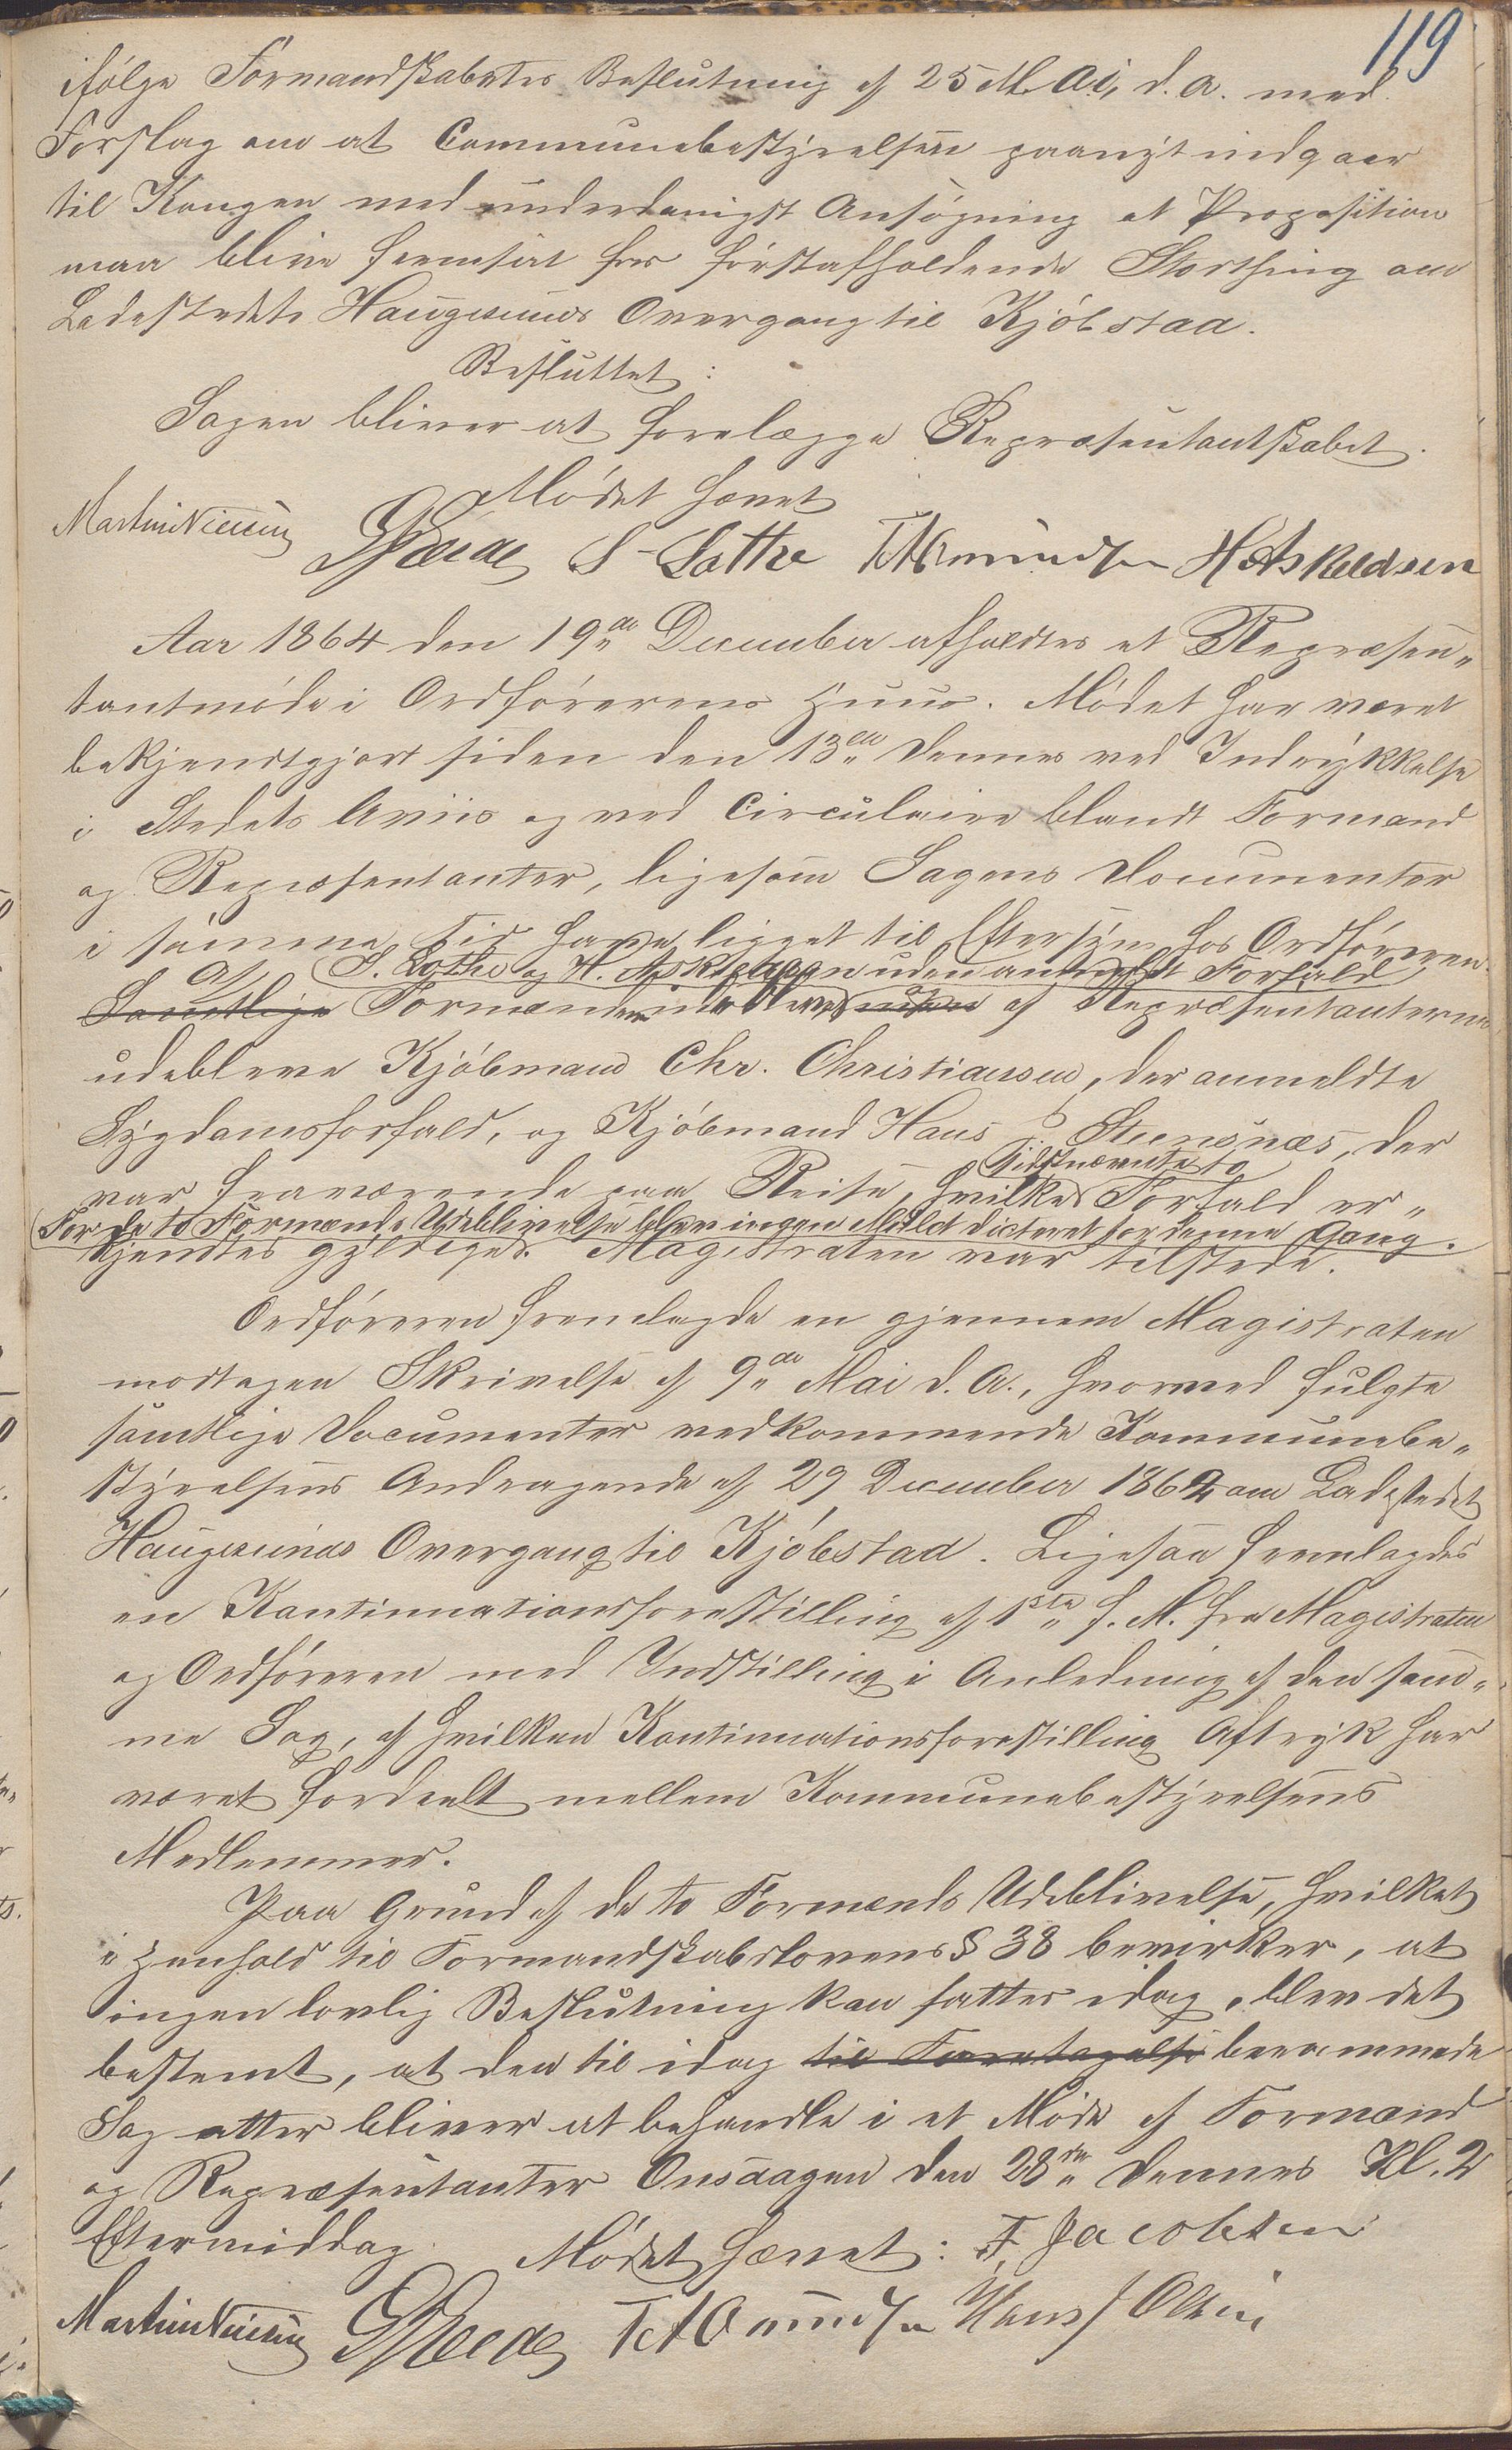 119
ifølge Formandskabets Beslutning af 25 Mai, d.a. med
Forslag om at Communebestyrelsen paanyt indgaaer
til Kongen med underdanigst Ansøgning at Proposition
maa blive fremsat for førstafholdende Storthing om
Ladestedet Haugesunds Overgang til Kjøbstad.
Besluttet:
Sagen bliver at forelægge Repræsentantskabet.
Mødet hævet
Martin Nielsen S. Lothe T. Amundsen H. Askeldsen
Aar 1864 den 19de December afholdtes et Repræsen„
tantmøde i Ordførerens Huus. Mødet har været
bekjendtgjort siden den 13de dennes ved Indrykkelse
i Stedets Aviis og ved Circulaire blandt Formænd
og Repræsentanter, ligesom Sagens Documenter
i samme Tid have ligget til Eftersyn hos Ordføreren.
Af S. Lothe og H. Askeldsen uden anmeldt Forfald
Samtlige Formændene af Repræsentanterne
udebleve Kjøbmand Chr. Christiansen, der anmeldte
Sygdomsforfald, og Kjøbmand Hans Steensnæs, der
sidstnævnte to
var fraværende paa Reise, hvilket Forfald er„
For de to Formænds Udeblivelse blev ingen Mulct dicteret for denne Gang.
kjendtes gyldiget. Magistraten var tilstede.
Ordføreren fremlagde en gjennem Magistraten
modtagen Skrivelse af 9de Mai d.A., hvormed fulgte
samtlige Documenter vedkommende Kommunebe„
styrelsens Andragende af 29 December 1862 om Ladestedet
Haugesunds Overgang til Kjøbstad. Ligesaa fremlagdes
en Kontinuationsforestilling af 1ste f. M. fra Magistraten
og Ordføreren med Indstilling i Anledning af den sam„
me Sag, af hvilken Kontinuationsforestilling Aftryk har
været fordeelt mellem Kommunebestyrelsens
Medlemmer.
Paa Grund af de to Formænds Udeblivelse, hvilket
i Henhold til Formandskabslovens § 38 bevirker, at
ingen lovlig Beslutning kan fattes idag, blev det
bestemt, at den til idag til Foretagelse berammede
Sag atter bliver at behandle i et Møde af Formænd
og Repræsentanter Onsdagen den 28de dennes Kl. 2
Eftermiddag. Mødet hævet: F. Jacobsen
Martin Nielsen T. Amundsen Hans J Olsen